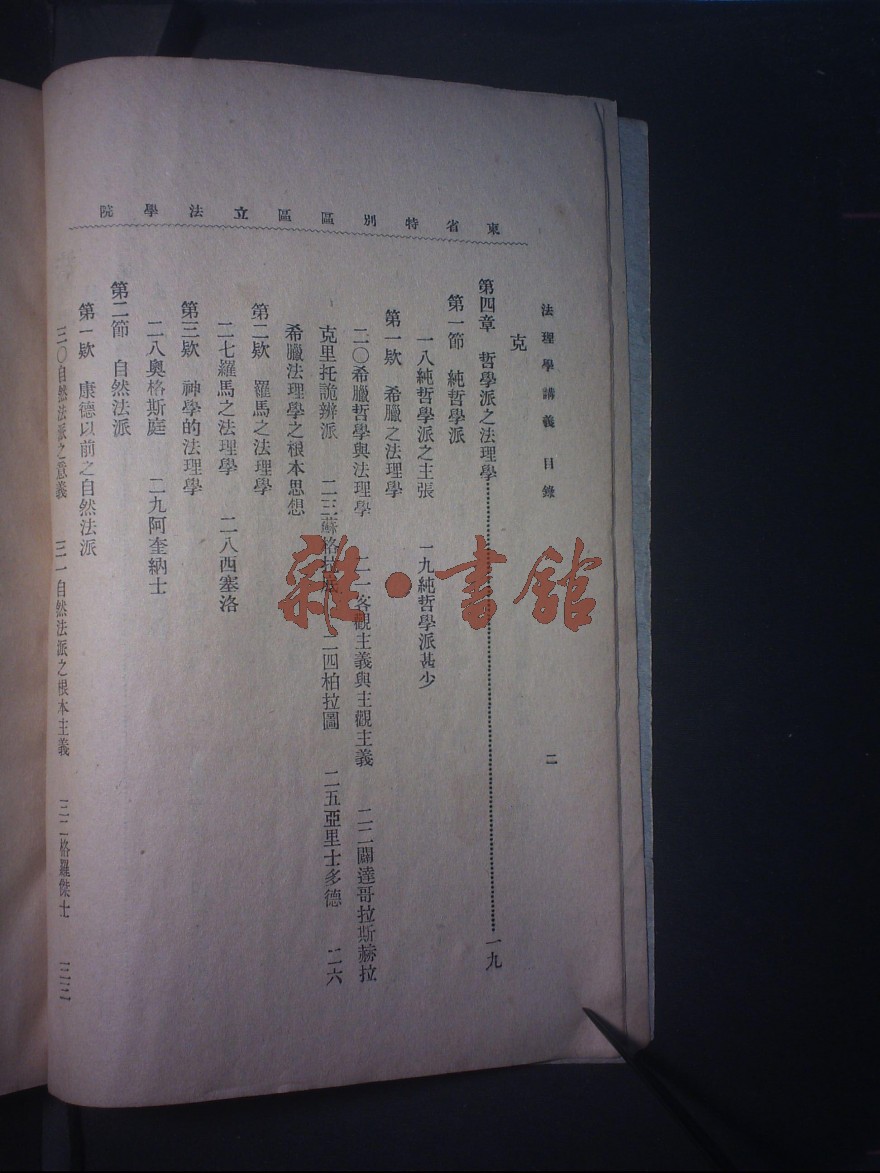 東省特別區區立法學院
法理學講義 目錄 二
克
第四章 哲學派之法理學……………一九
第一節 純哲學派
一八純哲學派之主張 一九純哲學派甚少
第一欵 希臘之法理學
二〇希臘哲學與法理學 二一客觀主義與主觀主義 二二闢達哥拉斯赫拉
克里托詭辨派 二三蘇格拉底 二四柏拉圖 二五亞里士多德 二六
希臘法理學之根本思想
第二欵 羅馬之法理學
二七羅馬之法理學 二八西塞洛
第三欵 神學的法理學
二八奧格斯庭 二九阿奎納士
第二節 自然法派
第一欵 康德以前之自然法派
三〇自然法派之意義 三一自然法派之根本主義 三二格羅傑士 三三
雜·書館